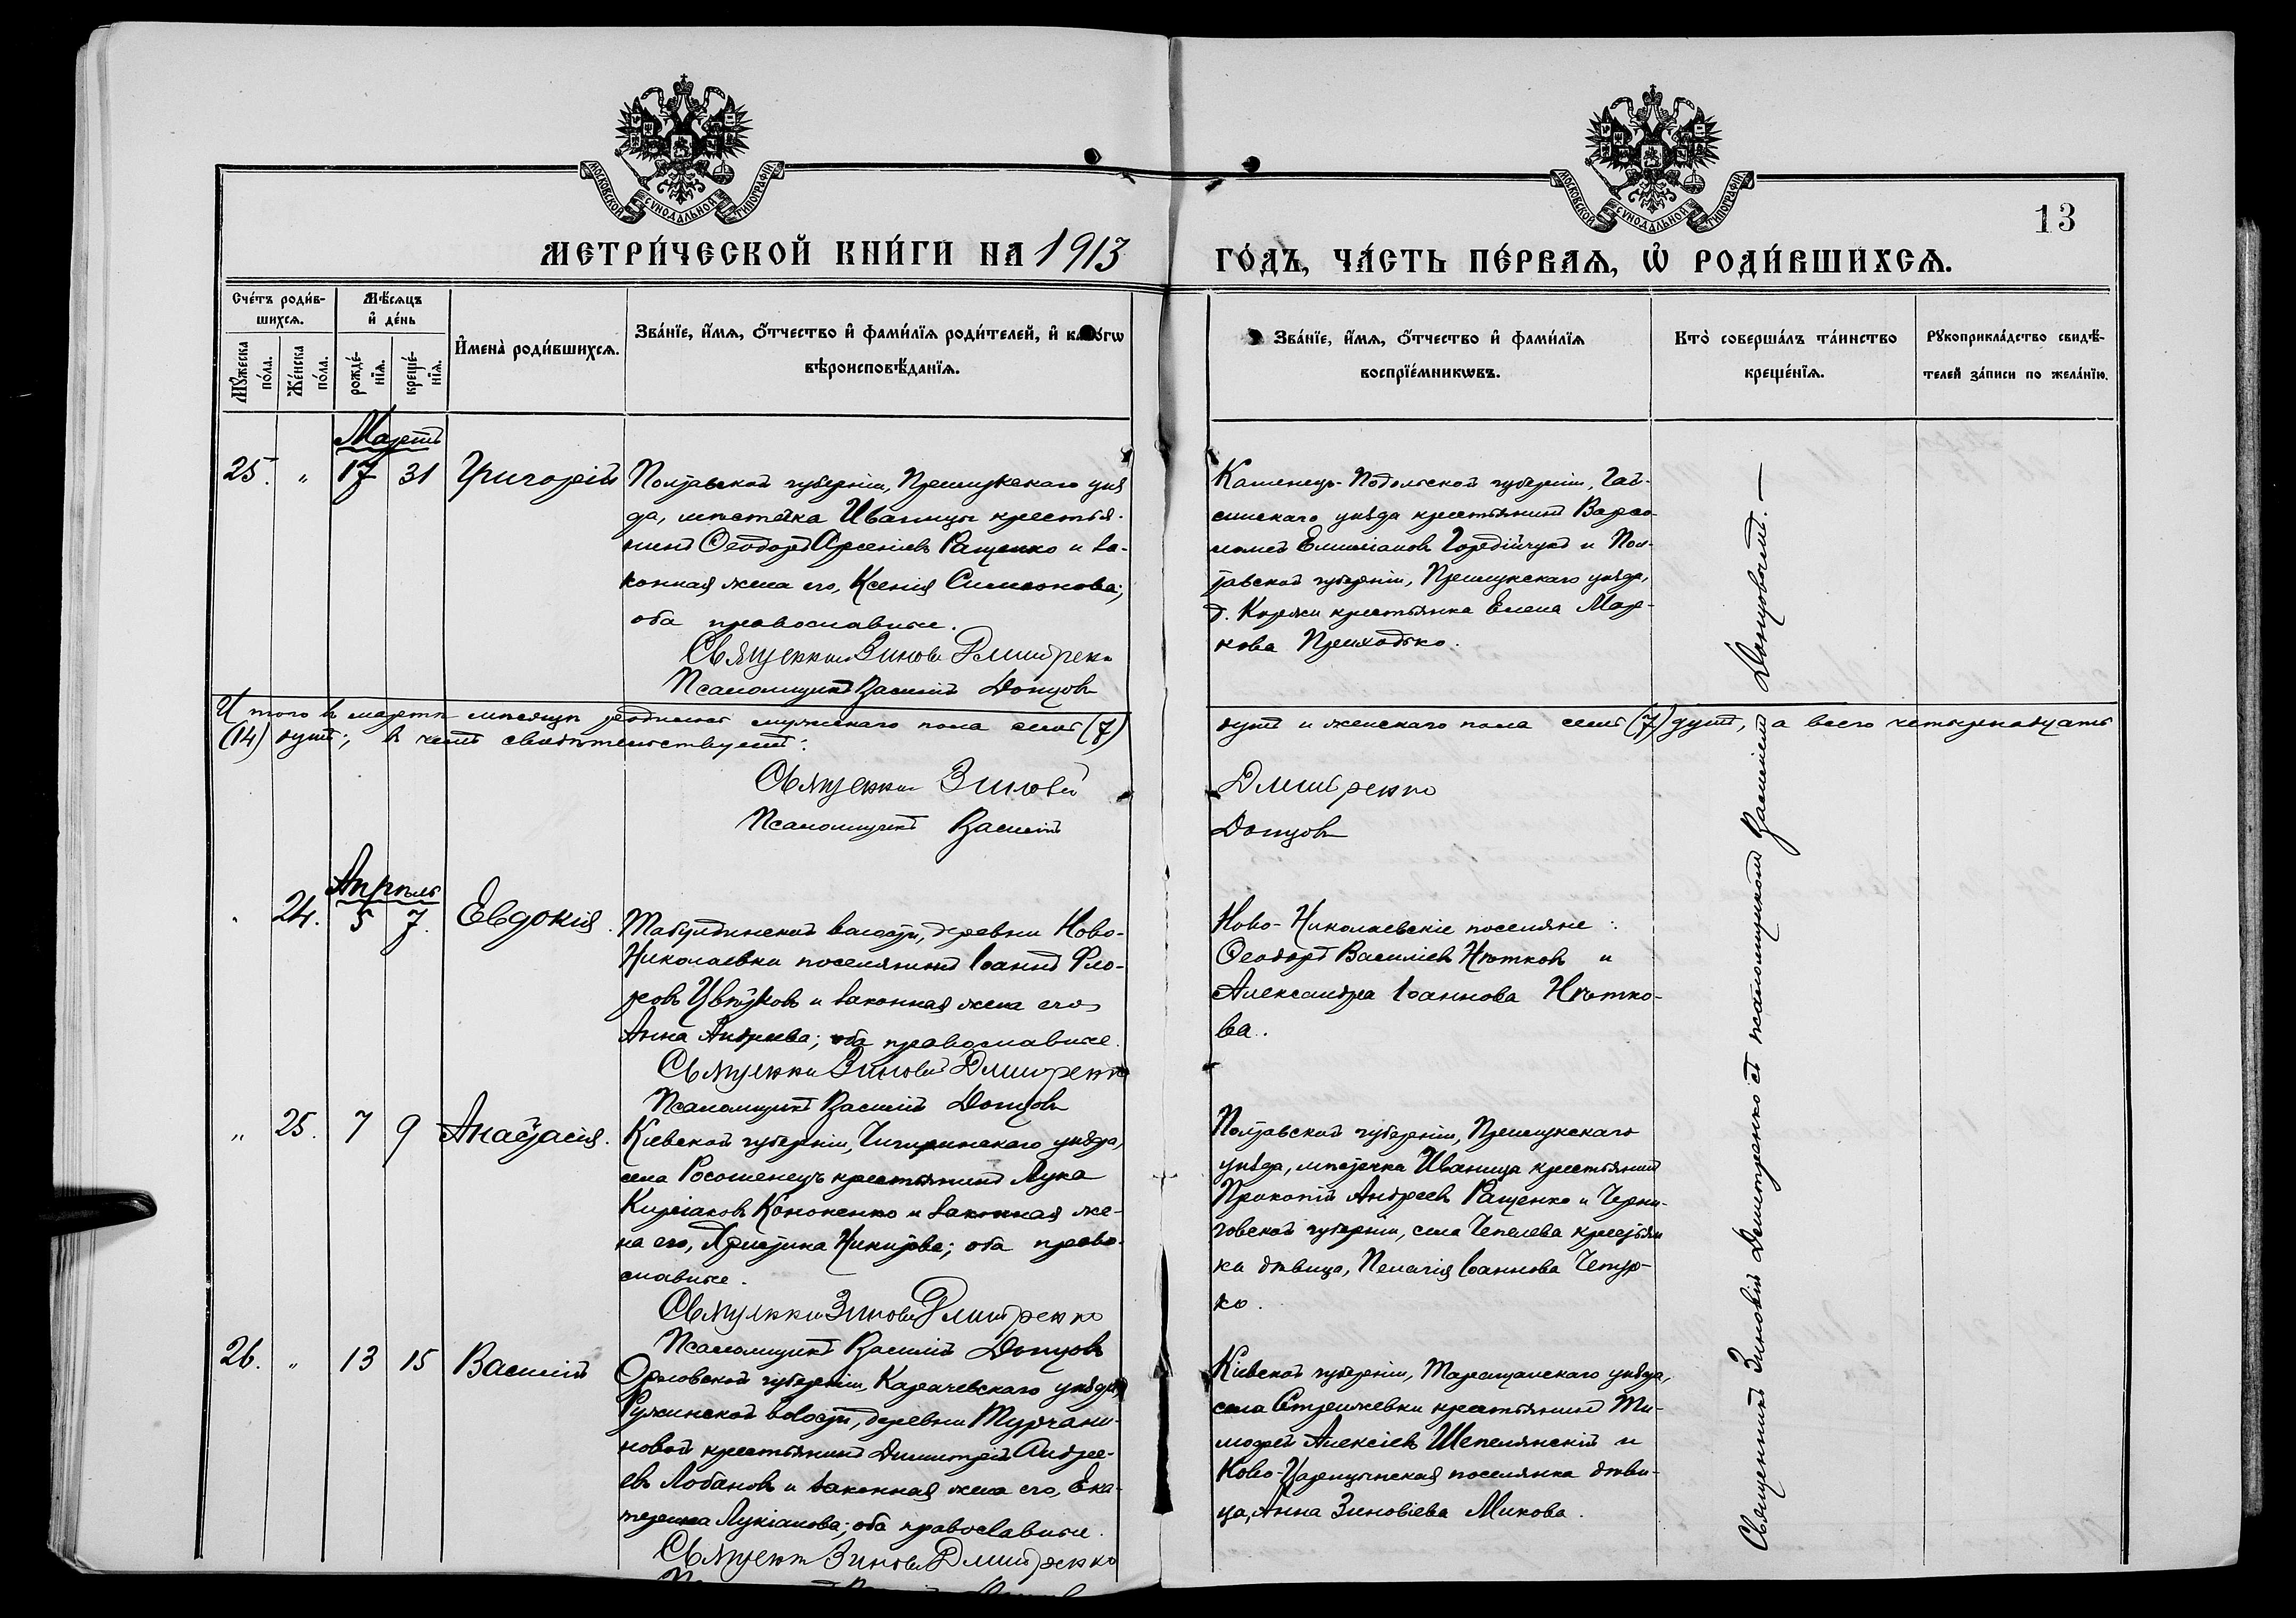 МОСКОВСКОЙ СѴНОДАЛЬНОЙ ТИПОГРАФІИ
МОСКОВСКОЙ СѴНОДАЛЬНОЙ ТИПОГРАФІИ
13
МЕТРИ́ЧЕСКОЙ КНИ́ГИ НА 1913
ГО́ДЪ, ЧА́СТЬ ПЕ́РВАѦ, Ѡ҆ РОДИ́ВШИХСѦ.
Сче́тъ роди́в-
шихсѧ.
Мѣ́сѧцъ
и҆ де́нь
Мꙋ́жеска
по́ла.
Же́нска
по́ла.
рожде́-
нїѧ.
креще́-
нїѧ.
И҆мена̀ роди́вшихсѧ.
Зва́нїе, и҆́мѧ, ѻ҆́тчество и҆ фами́лїѧ роди́телей, и҆
вѣроисповѣ́данїѧ.
Зва́нїе, и҆́мѧ, ѻ҆́тчество и҆ фами́лїѧ
воспрїе́мникѡвъ.
Кто̀ соверша́лъ та́инство
креще́нїѧ.
Рꙋкоприкла́дство свидѣ́-
телей за́писи по жела́нїю.
Мартъ
25. „ 17 31 Григорій
Полтавской губерніи, Прилукскаго уѣз
да, мѣстечка Иваницы крестья-
нинъ Ѳеодоръ Арсеніевъ Ращенко и за-
конная жена его, Ксенія Симеонова;
оба православные.
Священникъ Зиновій Дмитренко
Псаломщикъ Василій Донцовъ
Каменецъ-Подольской губерніи, Гай-
синскаго уѣзда крестьянинъ Варѳо-
ломей Емиліановъ Гордійчукъ и Пол-
тавской губерніи, Прилукскаго уѣзда,
д. крестьянка Елена Мар-
кова Приходько.
Итого въ мартѣ мѣсяцѣ родилось мужескаго пола семь (7)
душъ и женскаго пола семь (7) душъ, а всего четырнадцать
(14) душъ; въ чемъ свидѣтельствуемъ:
Священникъ Зиновій
Дмитренко
Псаломщикъ Василій
Донцовъ
Апрѣль
„ 24. 5 7. Евдокія.
Табулдинской волости, деревни Ново-
Николаевки поселянинъ Іоаннъ Фло-
ровъ Цвѣтковъ и законная жена его,
Анна Андреева; оба православные.
Священникъ Зиновій Дмитренко
Псаломщикъ Василій Донцовъ
Ново-Николаевскіе поселяне:
Ѳеодоръ Василіевъ Нѣтковъ и
Александра Іоаннова Нѣтко-
ва.
„ 25. 7 9 Анастасія.
Кіевской губерніи, Чигиринскаго уѣзда,
села Росошенецъ крестьянинъ Лука
Киріаковъ Кононенко и законная же-
на его, Христина Никитова; оба право-
славные.
Священникъ Зиновій Дмитренко
Псаломщикъ Василій Донцовъ
Полтавской губерніи, Прилукскаго
уѣзда, мѣстечка Иваница крестьянинъ
Прокопій Андреевъ Ращенко и Черни-
говской губерніи, села Чепелева крестьян
ка дѣвица, Пелагія Іоаннова Чепур-
ко.
26. „ 13 15 Василій
Орловской губерніи, Карачевскаго уѣзда,
Ружинской волости, деревни Турчани-
новой крестьянинъ Димитрій Андре-
евъ Лобановъ и законная жена его, Ека-
терина Лукіанова; оба православные.
Священникъ Зиновій Дмитренко
Кіевской губерніи, Таращанскаго уѣзда,
села Стрижевки крестьянинъ Ти-
моѳей Алексіевъ Шепелянскій и
Ново-Царицынская поселянка дѣви-
ца, Анна Зиновіева Микова.
Священникъ Зиновій Димитренко съ псаломщикомъ Василіемъ Донцовымъ.—